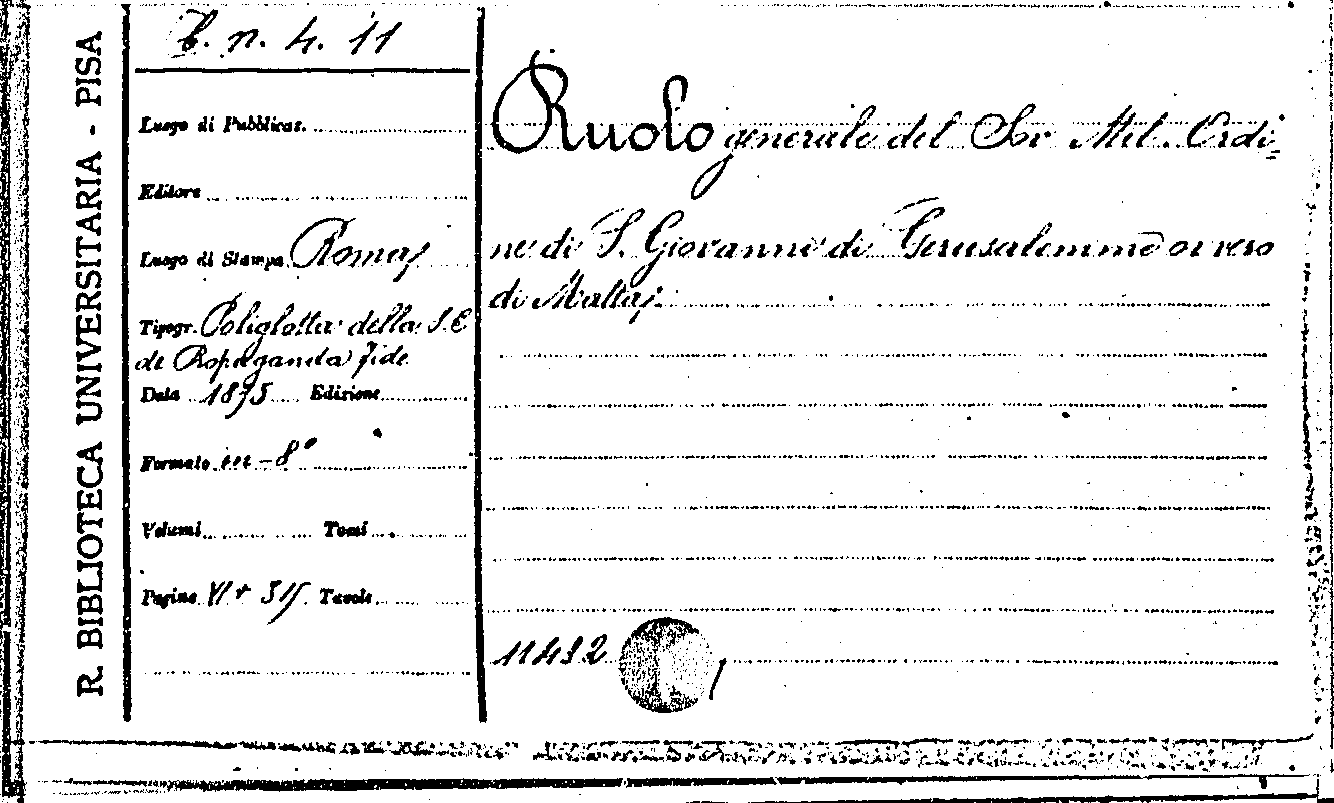 R. BIBLIOTECA UNIVERSITARIA - PISA
B. n. 4. 11
Luogo di Pubblicaz.
Editore
Luogo di Stampa Roma
Tipogr. Poliglotta della S. C.
de Propaganda Fide
Data 1895 Edizione
Formato in-8°
Volumi Tomi
Pagine VI + Tavole
Ruolo generale del Sov Mil. Ordi-
ne di S. Giovanni di Gerusalemme ovvero
di Malta
11432